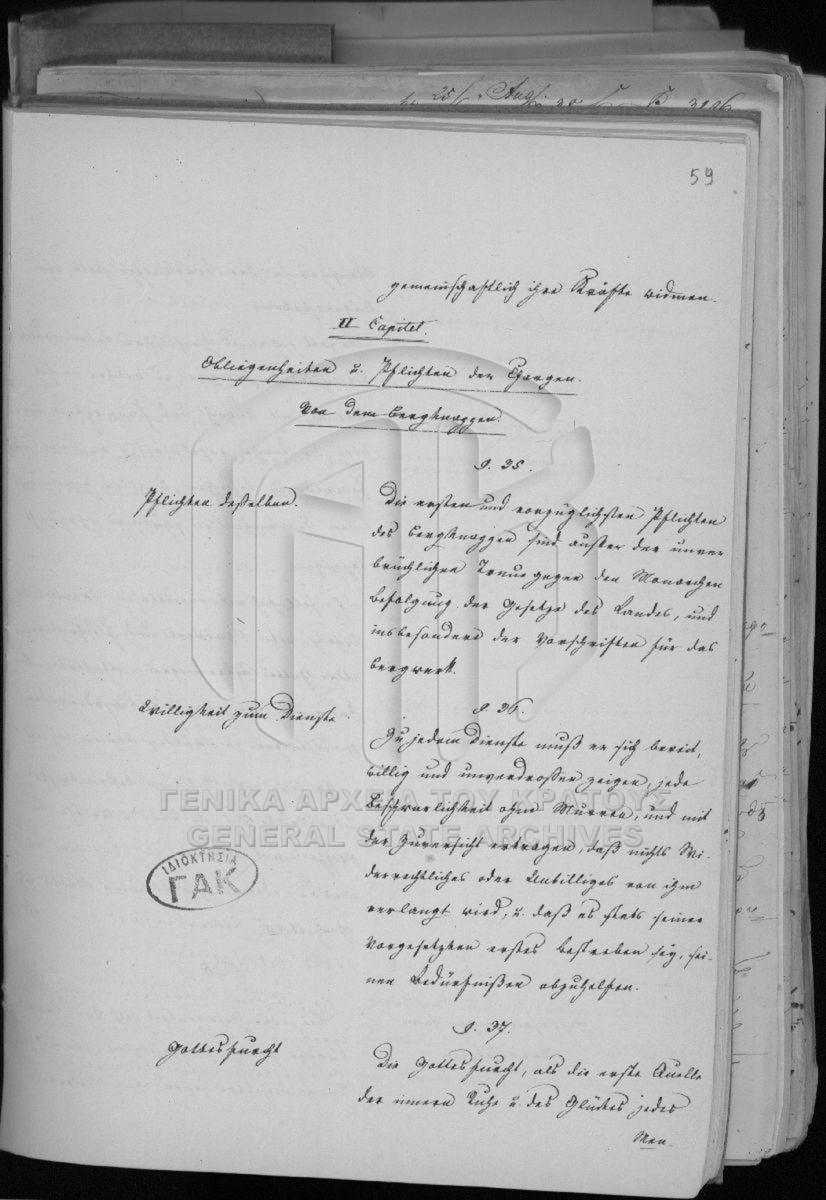 59
gemeinschaftlich ihre Kräfte widmen.
II Capitel.
Obliegenheiten u. Pflichten der Chargen.
Von dem Bergknappen.
§. 35.
Pflichten deßelben.
Die ersten und vorzüglichsten Pflichten
des Bergknappen sind außer der unver
brüchlichen Treue gegen den Monarchen
Befolgung der Gesetze des Landes, und
insbesondere der Vorschriften für das
Bergwerk.
§. 36.
Willigkeit zum Dienste.
Zu jedem Dienste muß er sich bereit,
willig und unverdrossen zeigen, jede
Beschwerlichkeit ohne Murren, und mit
der Zuversicht ertragen, daß nichts Wi-
derrechtliches oder Unbilliges von ihm
verlangt wird, u. daß es stets seiner
Vorgesetzten erstes Bestreben sey, sei-
nen Bedürfnißen abzuhelfen.
§. 37.
Gottesfurcht
Die Gottesfurcht, als die erste Quelle
der innern Ruhe u. des Glückes jedes
Men-
ΓΕΝΙΚΑ ΑΡΧΕΙΑ ΤΟΥ ΚΡΑΤΟΥΣ
GENERAL STATE ARCHIVES
ΙΔΙΟΚΤΗΣΙΑ
ΓΑΚ